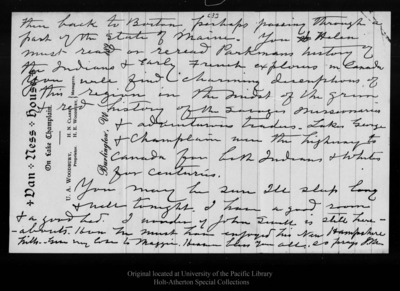 then back to Boston perhaps passing through a
part of the State of Maine. You & Helen
must read or reread Parkmans history of
the Indians & Early French explorers in Canada
You will find charming descriptions of
this region in the midst of the grim
& red history of the Jesuit Missionaries
& adventurous traders. Lake George
& Champlain were the highway to
Canada for both Indians & Whites
for centuries.
You may be sure Ill sleep long
& well tonight. I have a good room
& a good bed. I wonder if John Swett is still here-
abouts. How he must have enjoyed his New Hampshire
hills. Ever my love to Maggie. Heaven bless you all, as prays J Muir
+ Van + Ness + House +
On Lake Champlain.
U. A. WOODBURY, Proprietor.
H. N. CLARK
H. E. WOODBURY
Managers.
Burlington, Vt
Original located at University of the Pacific Library
Holt-Atherton Special Collections